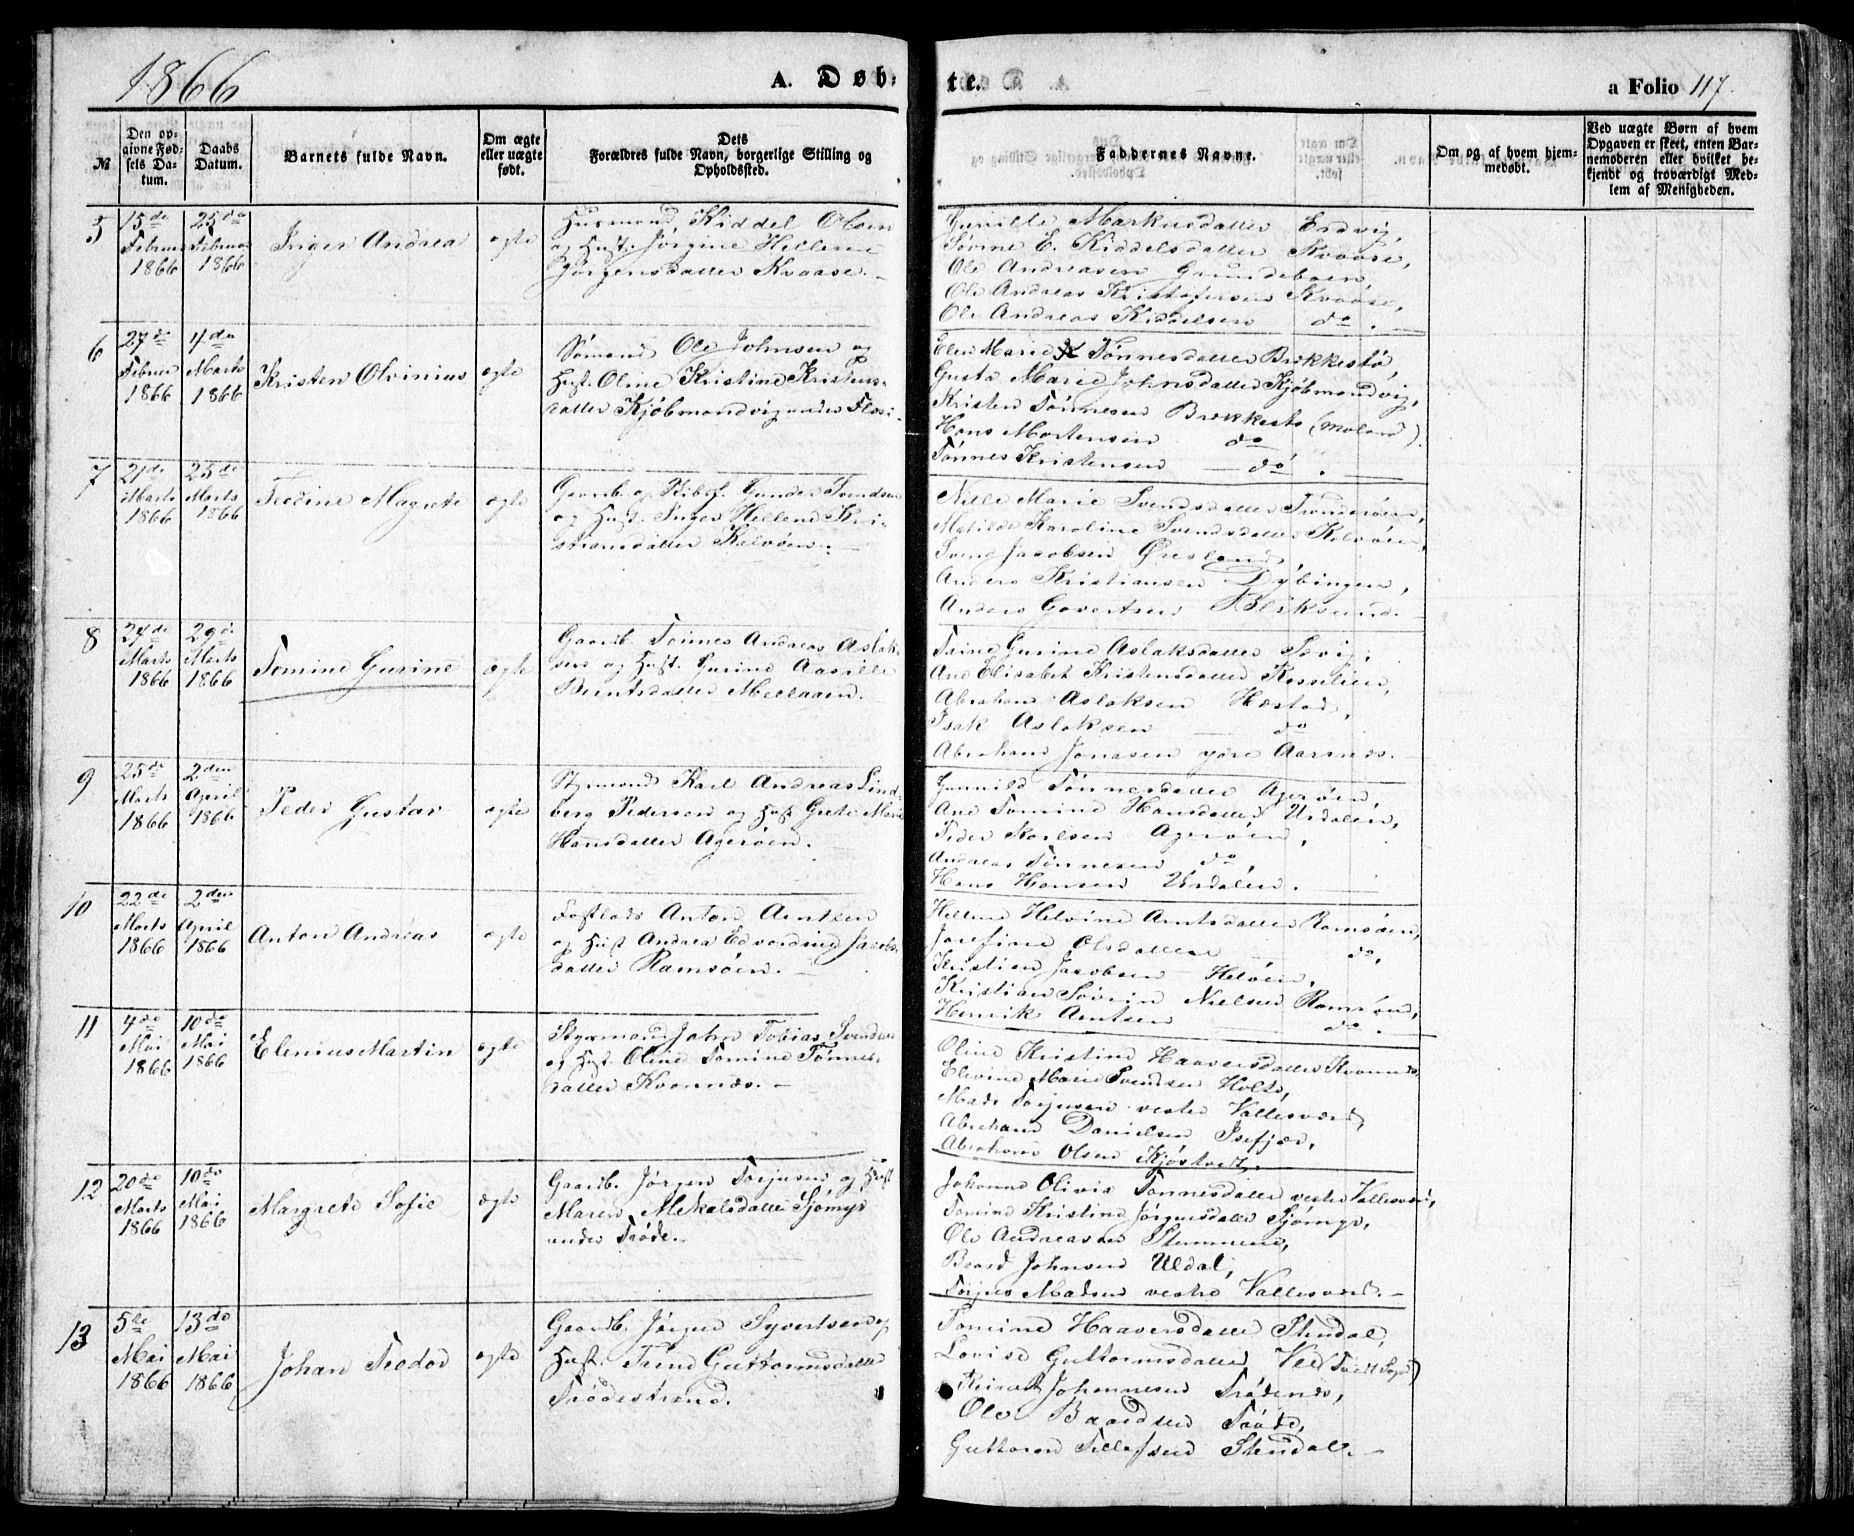 1866
A. Døb-
te.
a Folio 117.
№
Den op-
givne Fød-
sels Da-
tum.
Daabs
Datum.
Barnets fulde Navn.
Om ægte
eller uægte
født.
Dets
Forældres fulde Navn, borgerlige Stilling og
Opholdssted.
Faddernes Navne.
Om og af hvem hjem-
medøbt.
Ved uægte Børn af hvem
Opgaven er skeet, enten Bar-
nemoderen eller hvilket be-
kjendt og troværdigt Med-
lem af Menigheden.
5
15de
Februar
1866
25de
Februar
1866
Inger Andrea
ægte
Husmand Kiddel Olsen
og Hust. Jørgine Hellene
Jørgensdatter Kvaase.
Gunille Markusdatter Eidvig,
Sørine E. Kiddelsdatter Kvaase,
Ole Andreasen Grundeboen,
Ole Andreas Kristofersen Kvaase,
Ole Andreas Kiddelsen do.
6
27de
Februar
1866
4de
Marts
1866
Kristen Olvinius
ægte
Sømand Ole Johnsen og
Hust. Oline Kristine Kristens-
datter Kjøbmandvig under
Elen Marie Tønnesdatter Brækkestø,
Gusta Marie Johnsdatter Kjøbmandvig,
Kristen Tønnesen Brækkestø (Moland).
Hans Mortensen do
Tønnes Kristensen do.
7
21de
Marts
1866
25de
Marts
1866
Teodine Magrete
ægte
Gaardb. og Skibsf. Gunder Svendsen
og Hust. Inger Hellene Kri-
stiansdatter Kalvøen.
Nille Marie Svendsdatter Trønderøen,
Matilde Karoline Svendsdatter Kalvøen,
Svend Jacobsen Øresland,
Anders Kristiansen Dybingen,
Anders Govertsen Bliksund.
8
24de
Marts
1866
29de
Marts
1866
Tomine Gurine
ægte
Gaardb. Tønnes Andreas Aslak-
sen og Hust. Gurine Aasille
Berntsdatter Mellaaen.
Trine Gurine Aslaksdatter Sævig,
Ane Elisabet Kristensdatter Rosselien,
Abraham Aslaksen Hæstad,
Isak Aslaksen do
Abraham Jonasen ydre Aarsnæs.
9
25de
Marts
1866
2den
April
1866
Peder Gustav
ægte
Styrmand Karl Andreas Lind-
berg Pedersen og Hust Gute Marie
Hansdatter Agerøen.
Gunnild Tønnesdatter Agerøen,
Ane Tomine Hansdatter Urdalen,
Peder Karlsen Agerøen,
Andreas Tønnesen do,
Hans Hansen Urdalen.
10
22de
Marts
1866
2den
April
1866
Anton Andreas
ægte
Fastlods Anton Arntsen
og Hust Andrea Edvardine Jacobs-
datter Ramsøen.
Hellene Helvine Arntsdatter Ramsøen,
Josefine Olsdatter do,
Kristian Jacobsen Heløen,
Kristian Sørin Nielsen Ramsøen,
Henrik Arntsen do.
11
4de
Mai
1866
10de
Mai
1866
Elenius Martin
ægte
Styrmand John Tobias Svendsen
og Hust. Oline Tomine Tønnes-
datter Kvannæs.
Oline Kristine Haaversdatter Kvannæs,
Elevine Marie Svendsen Holte,
Mads Torjusen vestre Vallesværd,
Abraham Danielsen Isefjær,
Abraham Olsen Kjøstvedt.
12
20de
Marts
1866
10de
Mai
1866
Margrete Sofie
ægte
Gaardb. Jørgen Torjusen og Hust
Maren Mekalsdatter Sjømyr
under Trøde.
Johanne Olivia Tønnesdatter vestre Vallesværd,
Tomine Kristine Jørgensdatter Sjømyr,
Ole Andreassen Stemmene,
Baard Johnsen Uldal,
Torjus Madsen vestre Vallesværd.
13
5te
Mai
1866
13de
Mai
1866
Johan Teodor
ægte
Gaardb. Jørgen Syvertsen og
Hust. Trine Guttormsdatter
Trødestrand.
Tomine Haaversdatter Stendal,
Lovise Guttormsdatter Vee (Tveit Sogn)
Johannesen Trødenæs,
Ole Baardsen Trøde,
Guttorm Tellefsen Stendal.